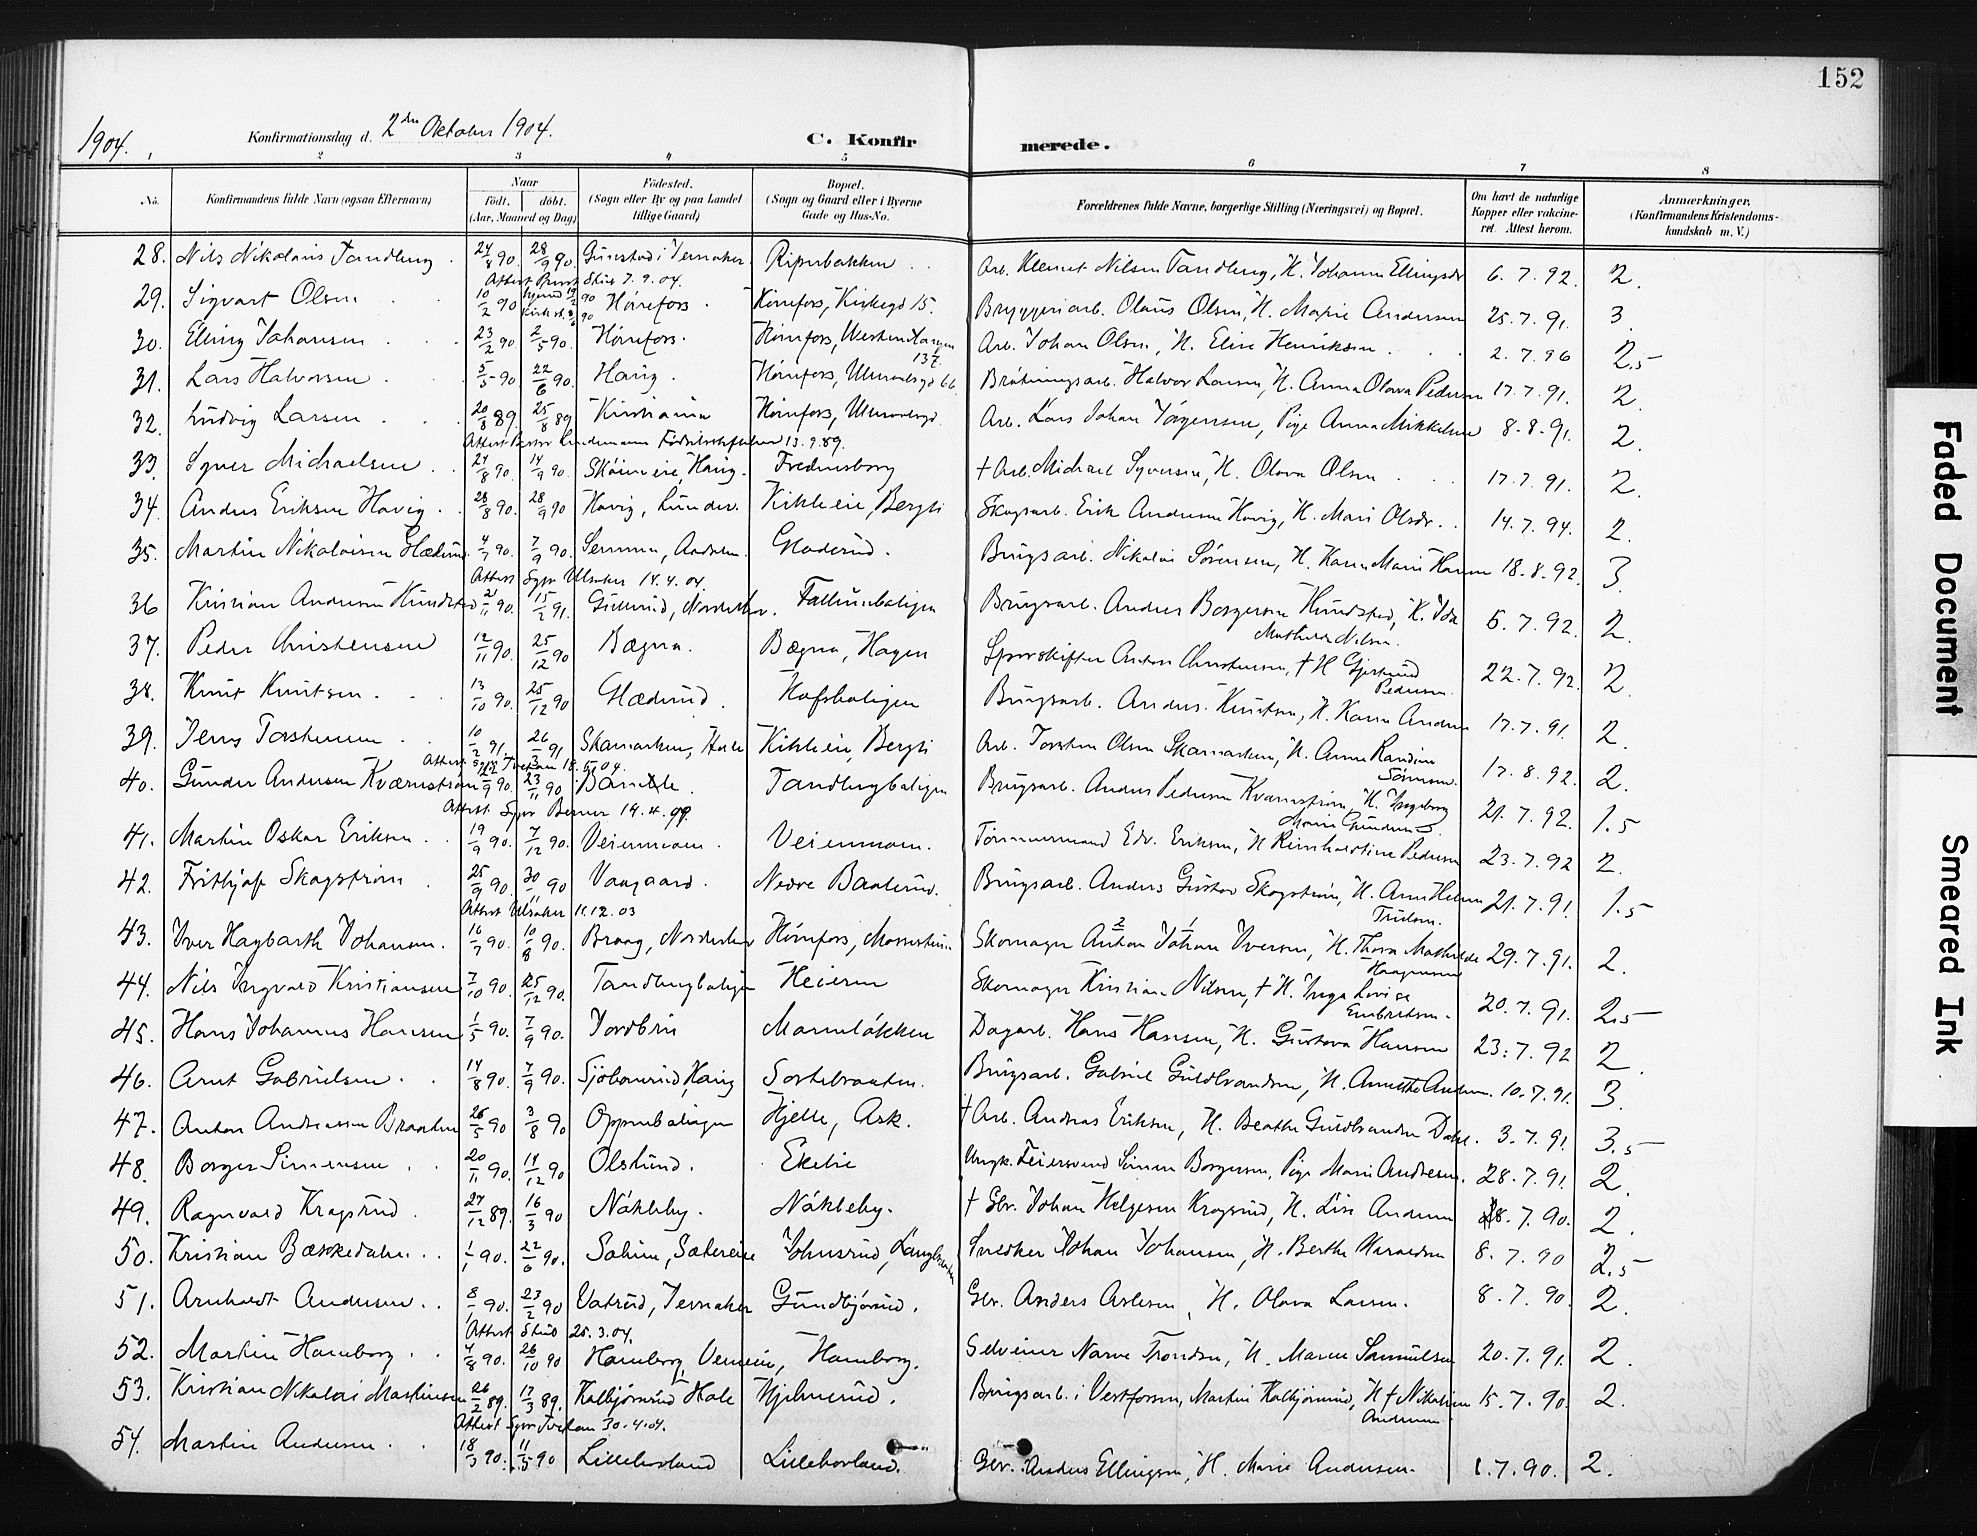 152
1904. Konfirmationsdag d. 2den Oktober 1904. C. Konfirmerede.
1 2 3 4 5 6 7 8
No. Konfirmandens fulde Navn (ogsaa Efternavn) Naar födt. döbt. (Aar, Maaned og Dag) Födested. (Sogn eller By og paa Landet tillige Gaard) Bopæl. (Sogn og Gaard eller i Byerne Gade og Hus-No. Forældrenes fulde Navne, borgerlige Stilling (Næringsvei) og Bopæl. Om havt de naturlige Kopper eller vakcineret. Attest herom. Anmærkninger. (Konfirmandens Kristendomskundskab m. V.)
28. Nils Nikolaus Tandberg 24/8 90 28/9 90 i Jevnaker Riperbakken Arb. Klemet Nilsen Tandberg, H. Johanne Ellingsdr 6.7.92. 2.
Attest Skub 7.9.04.
29. Sigvart Olsen 10/2 90 Hønefos Hønefos, Kirkegd 15. Bryggeriarb. Olaus Olsen, H. Marie Andersen 25.7.91. 3.
30. Elling Johansen 23/2 90. 2/5 90. Hønefos. Hønefos, Arb. Johan Olsen, H. Elise Henriksen 2.7.96 2.5
31. Lars Halvorsen 5/5 90 22/6 90. Haug. Hønefos, 66 Halvor Larsen, H. Anna Olava Pedersen 17.7.91. 2.
32. Ludvig Larsen 20/3 89. 25/8 89 Kristiania Hønefos, Arb. Lars Johan Jörgensen, Pige Anna Mikkelsen 8.8.91. 2.
Attest Pastor 13.9.89.
33. Syver Michaelsen 24/8 90. 14/9 90. Haug. Fredensborg † Arb. Michael Syversen, H. Olava Olsen 17.7.91. 2.
34. Anders Eriksen Hovig 28/8 90. 28/9 90 Hovig, Lunder. Kihleeie, Skogsarb. Erik Andersen Hovig, H. Mari Olsdr. 14.7.94. 2.
35. Martin Nikolaisen Glæderud 4/7 90. 7/9 90. Glæderud. Brugsarb. Nikolai Sörensen, H. Karen Marie Hansen 18.8.92. 3.
Attest Sgpr Ulsaker 14.4.04.
36 Kristian Andersen Hundstad 2/11 90. 15/2 91. Gullerud, Norderhov. Brugsarb. Anders Borgersen Hundstad, H. Ida Mathilde Nilsen. 5.7.92. 2.
37. Peder Christensen 12/11 90. 25/12 90 Bægna. Bægna, Hagen Sporskifter Anton Christensen, † H. Gjertrud Pedersen. 22.7.92. 2.
38. Knut Knutsen 13/10 90. 25/12 90 Glæderud. Hofsboligen Brugsarb. Anders Knutsen, H. Karen Andersen 17.7.91. 2.
39. Jens Torstensen 10/2 91. 26/3 91 Skamarken, Hole Kihleeie, Arb. Torsten Olsen Skamarken, H. Anne Randine Sörensen. 17.8.92. 2.
Attest Tvetan 18.5.04.
40. Gunder Andersen Kværnström 22/9 90. 23/11 90 Bamble. Tandbergboligen Brugsarb. Anders Pedersen Kværnström, H. Ingeborg Marie Gundersen 21.7.92. 1.5
Attest Sgpr Berner 14.4.99.
41. Martin Oskar Eriksen 19/9 90. 7/12 90. Veienmoen. Veienmoen. Tömmermand Edv. Eriksen, H. Reinholdtine Pedersen 23.7.92 2.
42. Frithjof Skogström 25/9 90. 30/11 90 Vaagaard. Nedre Brugsarb. Anders Gustav Skogström, H. Anne Helene 21.7.91. 1.5
Attest Ulsaker 11.12.03
43. Iver Hagbarth Johansen. 16/7 90. 10/8 90. Braag, Norderhov Hønefos, Skomager Anton Johan Iversen, H. Thora Mathilde Haagensen 29.7.91. 2.
44. Nils Ingvald Kristiansen 7/10 90. 25/12 90. Tandbergboligen Heieren Skomager Kristian Nilsen, † H. Inga Lovise Embretsen. 20.7.91. 2.5
45. Hans Johannes Hansen 1/5 90. 7/9 90. Jordbru Dagarb. Hans Hansen, H. Gustava Hansen 23.7.92 2.
46. Arnt Gabrielsen 14/8 90. 7/9 90. Haug Sortebraaten. Brugsarb. Gabriel Guldbrandsen, H. Annette Andersen. 10.7.91. 3.
47. Anton Andreassen Braaten 26/5 90 3/8 90 Oppenboligen Hjelle, Ask. † Arb. Andreas Eriksen, H. Beathe Guldbrandsen Dahl. 3.7.91. 3.5
48. Borger Simensen 20/11 90. 14/12 90 Olslund. Ekelie Ungk. Feiersvend Simen Borgersen, Pige Mari Andresen. 28.7.91. 2.
49. Ragnvald Kragsrud 27/12 89. 16/3 90 Nákleby. Nákleby. † Gbr. Johan Helgesen Kragsrud, H. Lise Andersen 28.7.90. 2.
50. Kristian Bækkedalen 1/1 90. 22/6 90. Solum, Sætereie Johnsrud, Snedker Johan Johansen, H. Berthe Haraldsen 8.7.90 2.5
51. Arnhardt Andersen 8/1 90. 23/2 90 Vatrud, Jevnaker Gundbjörud. Gbr. Anders Arlesen, H. Olava Larsen. 8.7.90 2.
Attest Skub 25.3.04.
52. Martin Hamborg 4/8 90. 26/10 90 Hamborg Hamborg. Selveier Narve Trondsen, H. Maren Samuelsen 20.7.91. 2.
53. Kristian Nikolai Martinsen 26/2 89. 17/3 89. Kolbjörnrud Hole Hjelmerud. Brugsarb. i Vestfossen, Martin Kolbjörnrud, H † Nikoline Andersen 15.7.90. 2.
Attest Sgpr Tvetan 30.4.04.
54. Martin Andersen 18/3 90. 11/5 90 Lillehovland Lillehovland. Gbr. Anders Ellingsen, H. Marie Andersen. 1.7.90. 2.
Faded Document
Smeared Ink